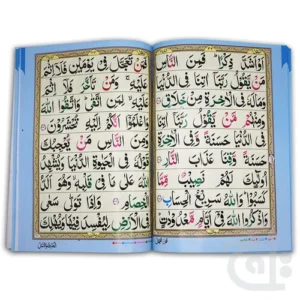 اَوۡ اَشَدَّ ذِكۡرًا فَمِنَ النَّاسِ
مَنۡ يَّقُوۡلُ رَبَّنَاۤ اٰتِنَا فِى الدُّنۡيَا
وَمَا لَهٗ فِى الۡاٰخِرَةِ مِنۡ خَلَاقٍ
وَمِنۡهُمۡ مَّنۡ يَّقُوۡلُ رَبَّنَاۤ اٰتِنَا
فِى الدُّنۡيَا حَسَنَةً وَّفِى الۡاٰخِرَةِ
حَسَنَةً وَّقِنَا عَذَابَ النَّارِ
اُولٰٓئِكَ لَهُمۡ نَصِيۡبٌ مِّمَّا
كَسَبُوۡا وَاللّٰهُ سَرِيۡعُ الۡحِسَابِ
وَاذۡكُرُوا اللّٰهَ فِىۡۤ اَيَّامٍ مَّعۡدُوۡدٰتٍ
فَمَنۡ تَعَجَّلَ فِىۡ يَوۡمَيۡنِ فَلَاۤ اِثۡمَ
عَلَيۡهِ وَمَنۡ تَاَخَّرَ فَلَاۤ اِثۡمَ
عَلَيۡهِ لِمَنِ اتَّقٰى وَاتَّقُوا اللّٰهَ
وَاعۡلَمُوۡٓا اَنَّكُمۡ اِلَيۡهِ تُحۡشَرُوۡنَ
وَمِنَ النَّاسِ مَنۡ يُّعۡجِبُكَ
قَوۡلُهٗ فِى الۡحَيٰوةِ الدُّنۡيَا وَيُشۡهِدُ
اللّٰهَ عَلٰى مَا فِىۡ قَلۡبِهٖ وَهُوَ اَلَدُّ
الۡخِصَامِ وَاِذَا تَوَلّٰى سَعٰى
فِى الۡاَرۡضِ لِيُفۡسِدَ فِيۡهَا وَيُهۡلِكَ